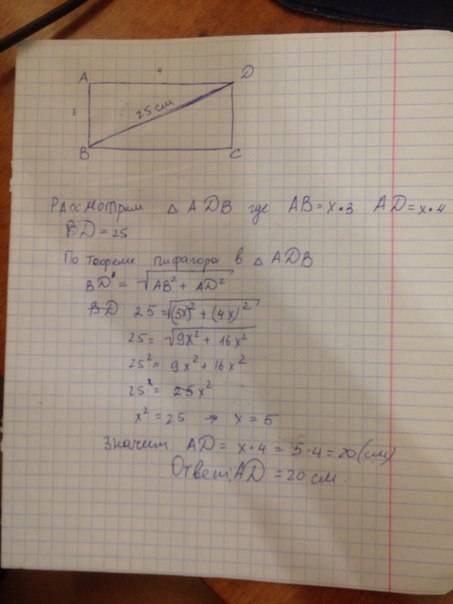 A D
25 см
B C
Рассмотрим △ ADB где AB = x·3 AD = x·4
BD = 25
По теореме пифагора в △ ADB
BD² = √AB² + AD²
BD 25 = √(3x)² + (4x)²
25 = √9x² + 16x²
25² = 9x² + 16x²
25² = 25x²
x² = 25 ⇒ x = 5
Значит AD = x·4 = 5·4 = 20 (см)
Ответ: AD = 20 см